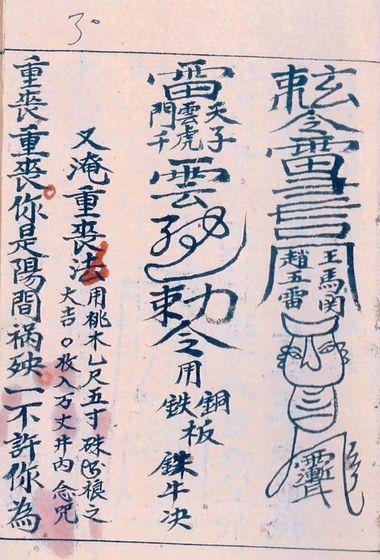 30
令雷
王馬関
趙五雷
雷
天子
雲虎
門千
雲
勅令用
銅
鉄
板
銖牛决
又淹重喪法用桃木乙尺五寸硃
之
大吉〇收入万丈井內念咒
重喪重喪你是陽間祸殃一不許你為